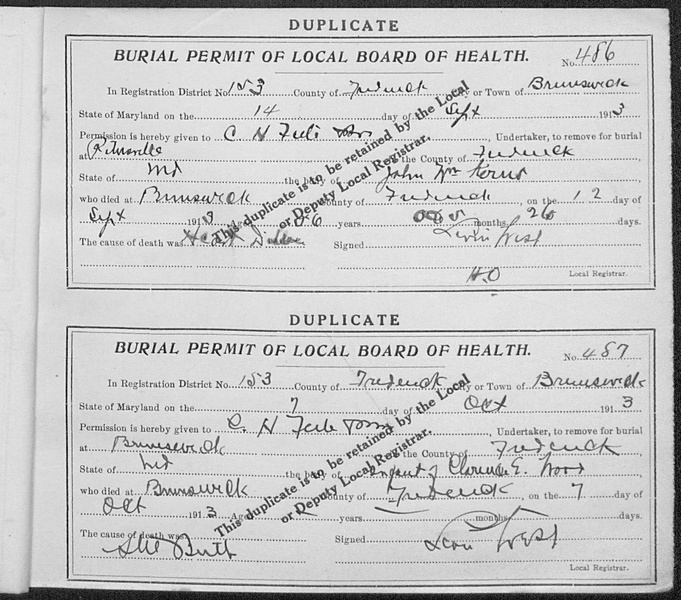 DUPLICATE
BURIAL PERMIT OF LOCAL BOARD OF HEALTH.
No. 486
In Registration District No. 153 County of Frederick City or Town of Brunswick
State of Maryland on the 14 day of Sept 1913
Permission is hereby given to C. H. Feete, Undertaker, to remove for burial
at in the County of Frederick
State of Md the body of John Wm Kerns
who died at Brunswick County of Frederick, on the 12 day of
Sept 1913 Aged 56 years months 26 days.
The cause of death was Heart Signed Levin West
H.O
Local Registrar.
This duplicate is to be retained by the Local
or Deputy Local Registrar.
DUPLICATE
BURIAL PERMIT OF LOCAL BOARD OF HEALTH.
No. 487
In Registration District No. 153 County of Frederick City or Town of Brunswick
State of Maryland on the 7 day of Oct 1913
Permission is hereby given to C. H. Feete, Undertaker, to remove for burial
at Brunswick in the County of Frederick
State of Md the body of Infant of Clarence E. Wood
who died at Brunswick County of Frederick, on the 7 day of
Oct 1913 Aged years months days.
The cause of death was Signed Levin West
Still Birth
Local Registrar.
This duplicate is to be retained by the Local
or Deputy Local Registrar.